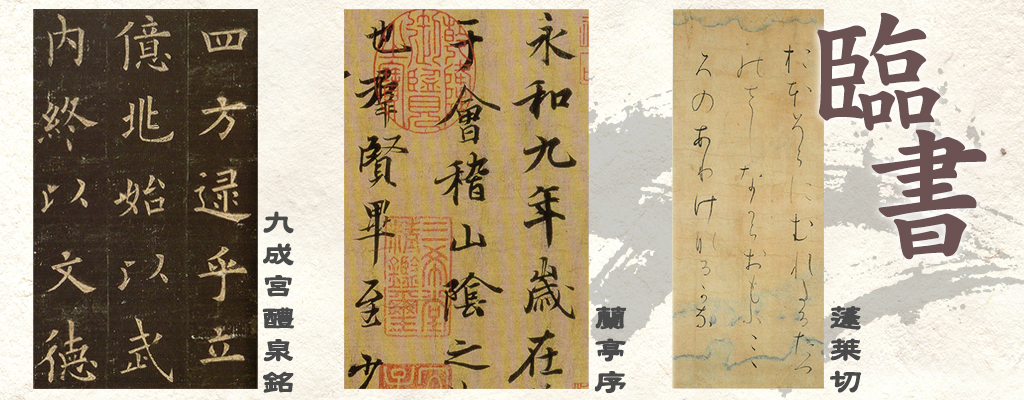 臨書
おほそらにむれたるたつ
のさしなからおもふこゝ
ろのありけなるかな
蓬莱切
永和九年歳在
于會稽山陰之
也羣賢畢至少
蘭亭序
四方逮乎立
億兆始以武
内終以文德
九成宮醴泉銘